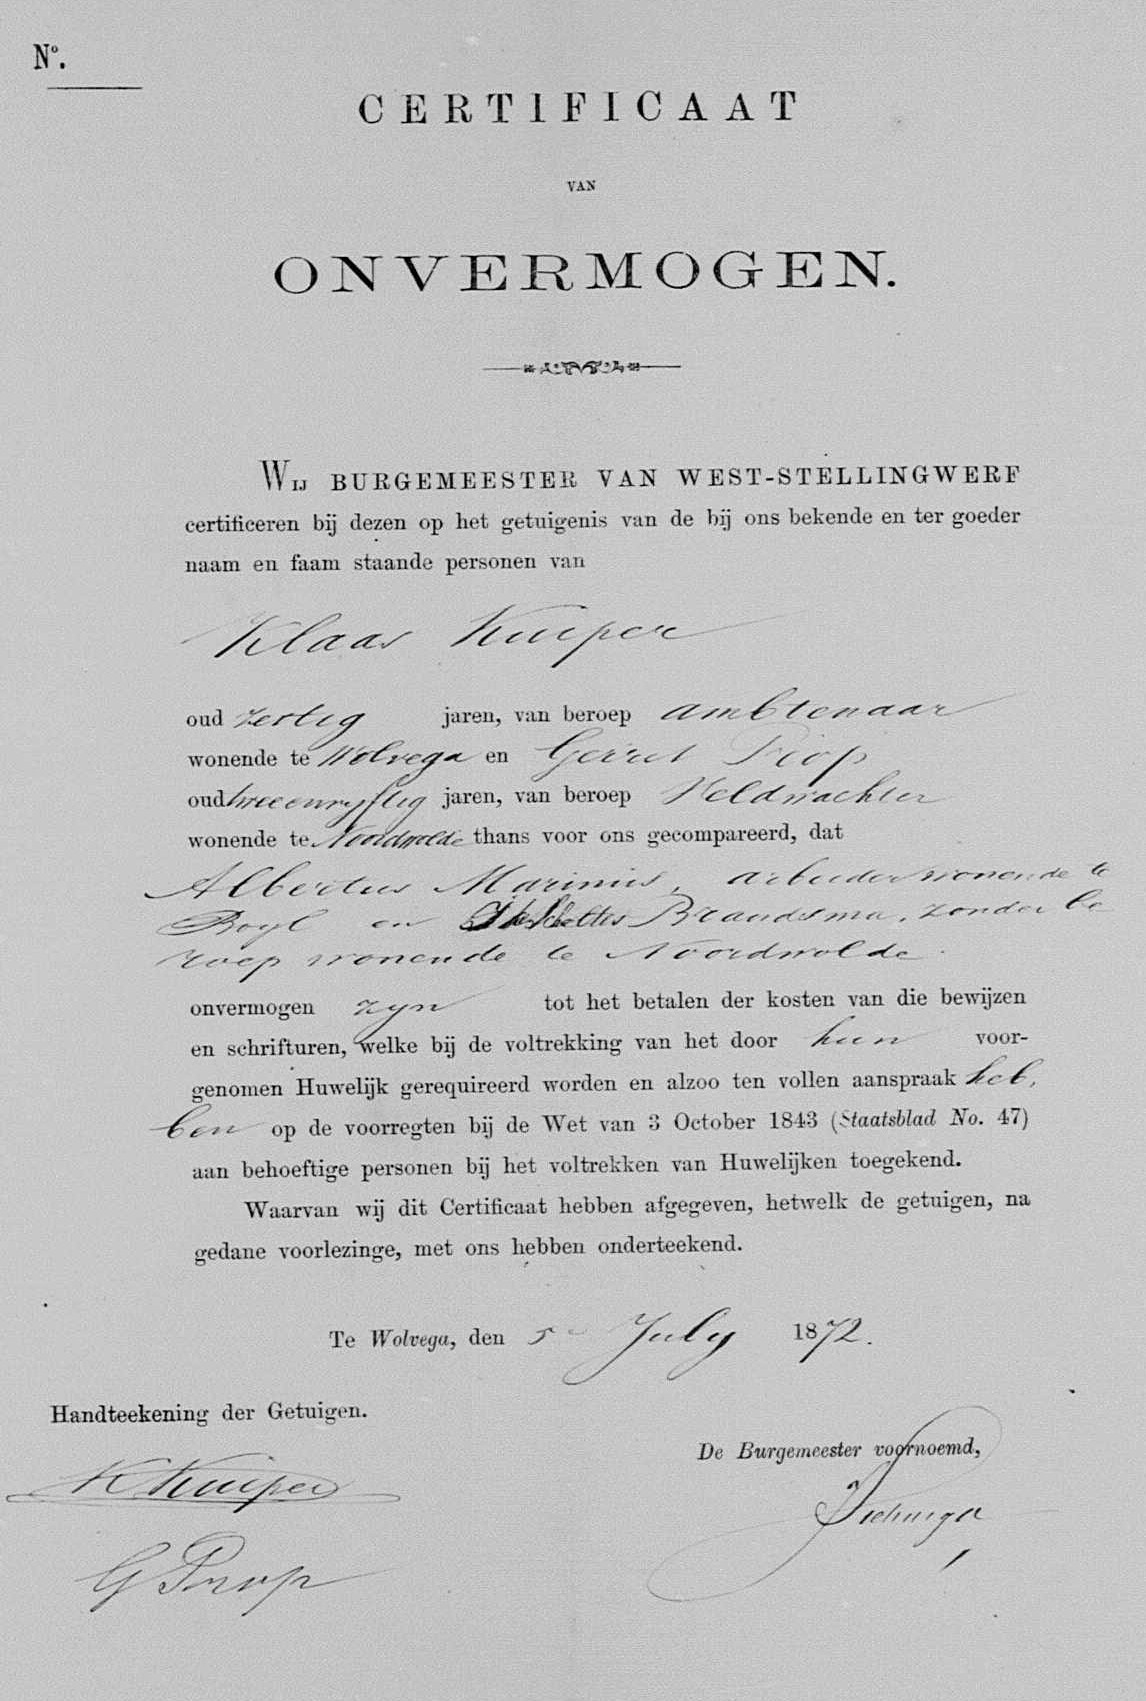 No.
CERTIFICAAT
VAN
ONVERMOGEN.
WIJ BURGEMEESTER VAN WEST-STELLINGWERF
certificeren bij dezen op het getuigenis van de bij ons bekende en ter goeder
naam en faam staande personen van
Klaas Kuiper
oud zestig jaren, van beroep ambtenaar
wonende te Wolvega en Gerrit Prop
oud tweeenvyftig jaren, van beroep Veldwachter
wonende te Noordwolde thans voor ons gecompareerd, dat
Albertus Marinus, arbeider wonende te
Boyl en Brandsma, zonder be
roep wonende te Noordwolde
onvermogen zyn tot het betalen der kosten van die bewijzen
en schrifturen, welke bij de voltrekking van het door hun voor-
genomen Huwelijk gerequireerd worden en alzoo ten vollen aanspraak heb,
ben op de voorregten bij de Wet van 3 October 1843 (Staatsblad No. 47)
aan behoeftige personen bij het voltrekken van Huwelijken toegekend.
Waarvan wij dit Certificaat hebben afgegeven, hetwelk de getuigen, na
gedane voorlezinge, met ons hebben onderteekend.
Te Wolvega, den 5e July 1872.
Handteekening der Getuigen.
De Burgemeester voornoemd,
K Kuiper
G Prop